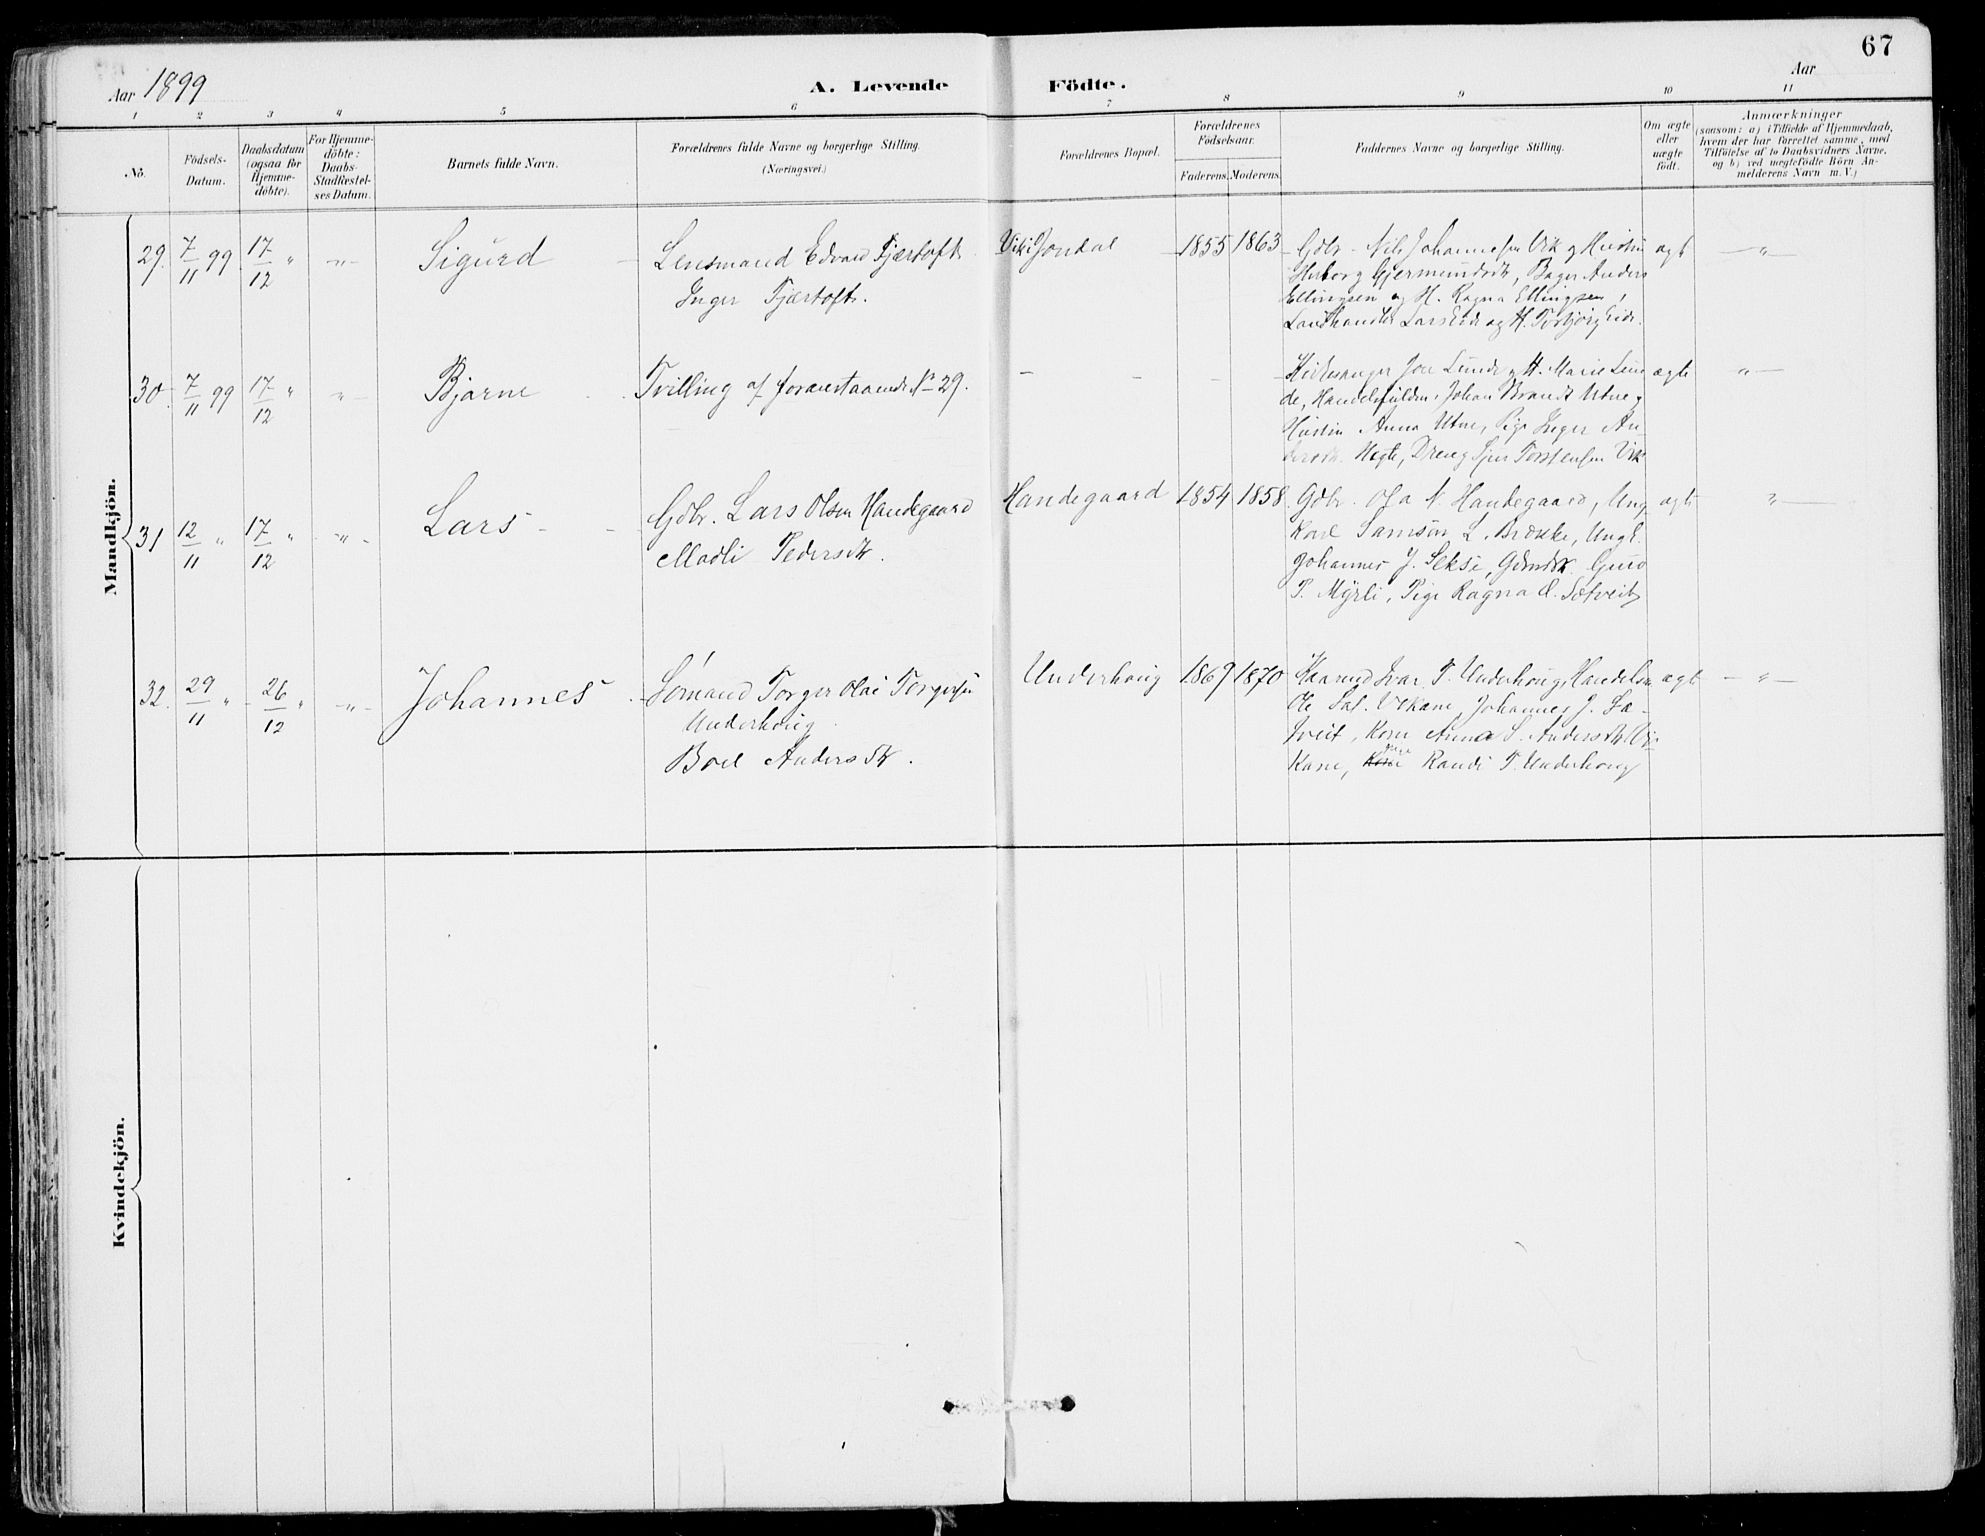 67
Aar 1899
A. Levende Födte.
Aar
1 2 3 4 5 6 7 8 9 10 11
No.
Födsels-
Datum.
Daabsdatum
(ogsaa for
Hjemme-
döbte).
For Hjemme-
döbte:
Daabs-
Stadfæstel-
ses Datum.
Barnets fulde Navn.
Forældrenes fulde Navne og borgerlige Stilling.
(Næringsvei.)
Forældrenes Bopæl.
Forældrenes
Födselsaar.
Faderens. Moderens.
Faddernes Navne og borgerlige Stilling.
Om ægte
eller
uægte
födt.
Anmærkninger
(saasom: a) i Tilfælde af Hjemmedaab,
hvem der har forrettet samme, med
Tilföielse af to Daabsvidners Navne,
og b) ved uegtefödte Börn An-
melderens Navn m. V.)
Mandkjön.
29. 7/11 99. 17/12 " -"- Sigurd
Lensmand Edvard Fjærtoft
Inger Fjærtoft.
Vik i Jondal 1855 1863
Gdbr. Nils Johannesen Vik og Hustru
Gjermundsdtr, Bager Anders
Ellingsen og H. Ragna Ellingsen,
Landhandler Lars Eide og H. Torbjørg Eide.
ægte -"-
30. 7/11 99 17/12 " -"- Bjarne
Tvilling af foranstaaende No 29.
- - - -
Kirkesanger Jon Lunde og H. Marie Lun
de, Johan Brandt Utne og
Hustru Anna Utne, Pige Inger An-
dersdtr. Hegte, Dreng Torstensen Vik
ægte "-
31 12/11 " 17/12 " -"- Lars
Gdbr. Lars Olsen Handegaard
Madli Pedersdtr.
Handegaard 1854 1858
Gdbr. Ola N. Handegaard, Ung
Karl Samson L. Brække, Ungk.
Johannes J. Seksi, Guro
P. Myrli, Pige Ragna O. Sætveit
ægte "-
32. 29/11 " 26/12 " -"- Johannes
Sømand Torger Olai Torgersen
Underhoug.
Boel Andersdtr.
Underhoug 1869 1870
Ivar T. Underhoug, Handelsm
Ole Vikane, Johannes J. Sæ-
tveit, Kone Anna S. Andersdtr Vi-
kane, Kone Randi T. Underhoug
ægte -"-
Kvindekjön.